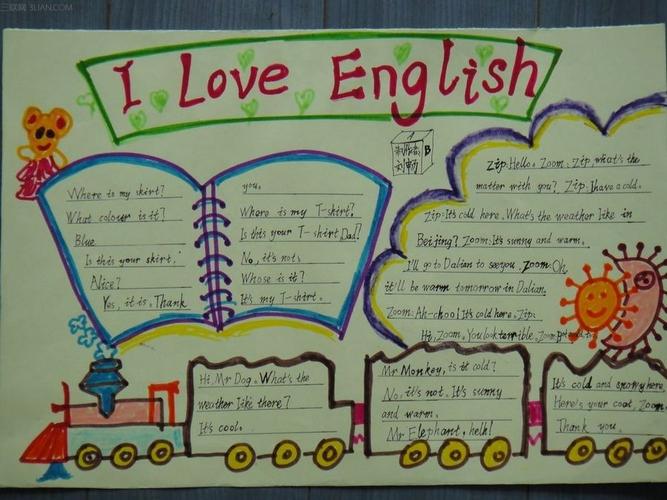 三联网 3LIAN.COM
I Love English
1
制作者
刘畅
B
Where is my skirt?
What colour is it?
Blue
Is this your skirt,
Alice?
Yes, it is. Thank
you.
Where is my T-shirt?
Is this your T-shirt Dad?
No, it's not,
Whose is it?
It's my T-shirt.
Zip: Hello. Zoom: Zip, what's the
matter with you? Zip: I have a cold.
Zip: It's cold here. What's the weather like in
Beijing? Zoom: It's sunny and warm.
I'll go to Dalian to see you. Zoom: Oh
it'll be warm tomorrow in Dalian.
Zoom: Ah-choo! It's cold here. Zip:
Hi, Zoom. You look terrible. Zoom:
Hi, Mr Dog. What's the
weather like there?
It's cool.
Mr Monkey, is it cold?
No, it's not. It's sunny
and warm.
Mr Elephant, helh!
It's cold and snowy here.
Here's your coat, Zoom
Thank you.